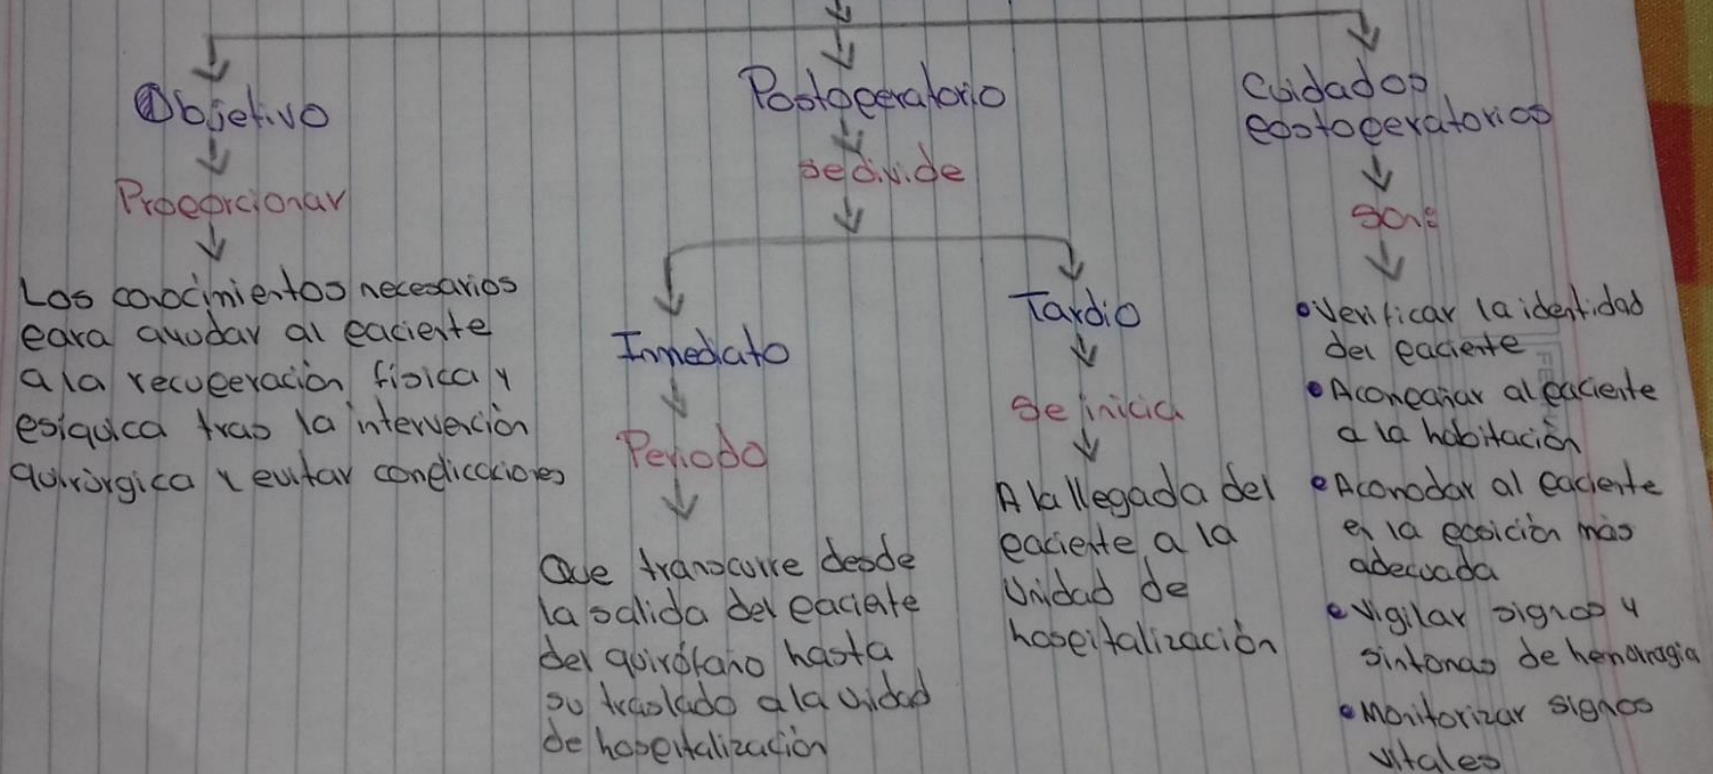 Objetivo
Proporcionar
Los conocimientos necesarios
para ayudar al paciente
a la recuperación física y
psiquica tras la intervención
quirúrgica y evitar complicaciones
Postoperatorio
se divide
Inmediato
Periodo
Que transcurre desde
la salida del paciente
del quirófano hasta
su traslado a la unidad
de hospitalización
Tardio
Se inicia
A la llegada del
paciente a la
Unidad de
hospitalización
Cuidados
postoperatorios
Son:
• Verificar la identidad
del paciente
• Acompañar al paciente
a la habitación
• Acomodar al paciente
en la posición más
adecuada
• Vigilar signos y
sintomas de hemorragia
• Monitorizar signos
vitales